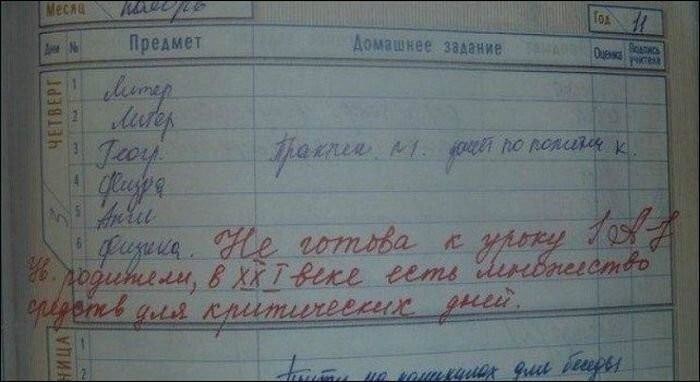 Месяц ноябрь
Год 11
Дни № Предмет Домашнее задание Оценка Подпись учителя
ЧЕТВЕРГ 3
1 Литер
2 Литер
3 Геогр. Практич. №1. по к.
4 Физра
5 Англ
6 Физика. Не готова к уроку
Ув. родители, в XXI веке есть множество
средств для критических дней.
1
2 на каникулах для беседы